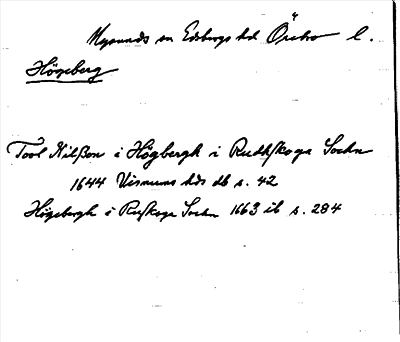 Mysunds sn Edsbergs hd Örebro l.
Högeberg
Tool Nilßon i Högbergh i Rudhskoga Sochn
1644 Visnums hds db s. 42
Högebergh i Ruskoga Sochn 1663 ib s. 284